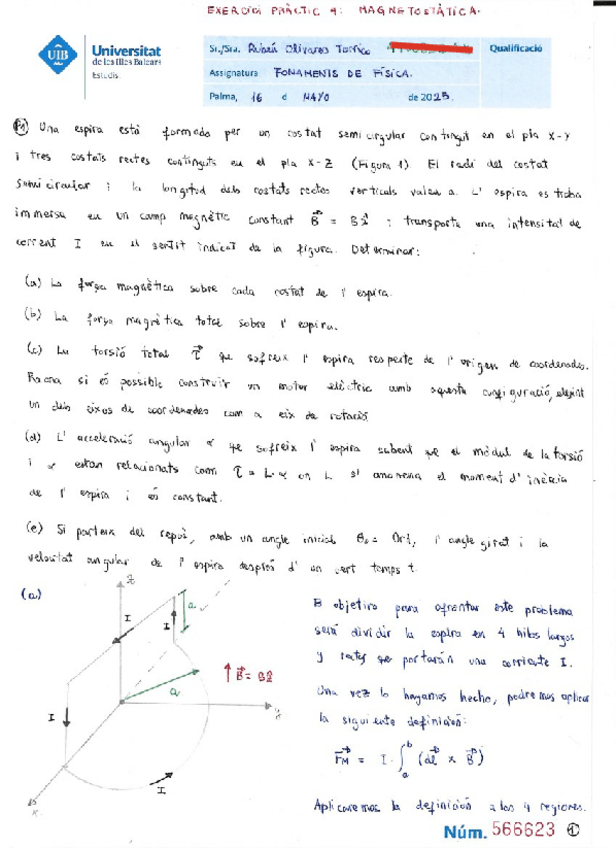 EXERCICI PRÀCTIC 4: MAGNETOSTÀTICA.
UIB
Universitat
de les Illes Balears
Estudis
Sr./Sra. Rubén Olivares Torrico
Qualificació
Assignatura FONAMENTS DE FÍSICA.
Palma, 16 d MAYO de 2025.
P1 Una espira està formada per un costat semicircular contingut en el pla X-Y
i tres costats rectes continguts en el pla X-Z (Figura 1). El radi del costat
semicircular i la longitud dels costats rectos verticals valen a. L' espira es troba
immersa en un camp magnètic constant B = B ; transporta una intensitat de
corrent I en el sentit indicat de la figura. Determinar:
(a) La força magnètica sobre cada costat de l' espira.
(b) La força magnètica total sobre l' espira.
(c) La torsió total τ que sofreix l' espira respecte de l' origen de coordenades.
Raona si és possible construir un motor elèctric amb aquesta configuració, elegint
un dels eixos de coordenades com a eix de rotació.
(d) L' acceleració angular α que sofreix l' espira sabent que el mòdul de la torsió
i α estan relacionats com τ = L·α on L s' anomena el moment d' inèrcia
de l' espira i és constant.
(e) Si parteix del repòs, amb un angle inicial θ₀ = 0rad, l' angle girat i la
velocitat angular de l' espira després d' un cert temps t.
(a)
z
I
I
a
a
B = B
y
I
I
x
El objetivo para afrontar este problema
será dividir la espira en 4 hilos largos
y rectos que portarán una corriente I.
Una vez lo hayamos hecho, podremos aplicar
la siguiente definición:
F_M = I · ∫_a^b (dl × B)
Aplicaremos la definición a las 4 regiones.
Núm. 566623 1